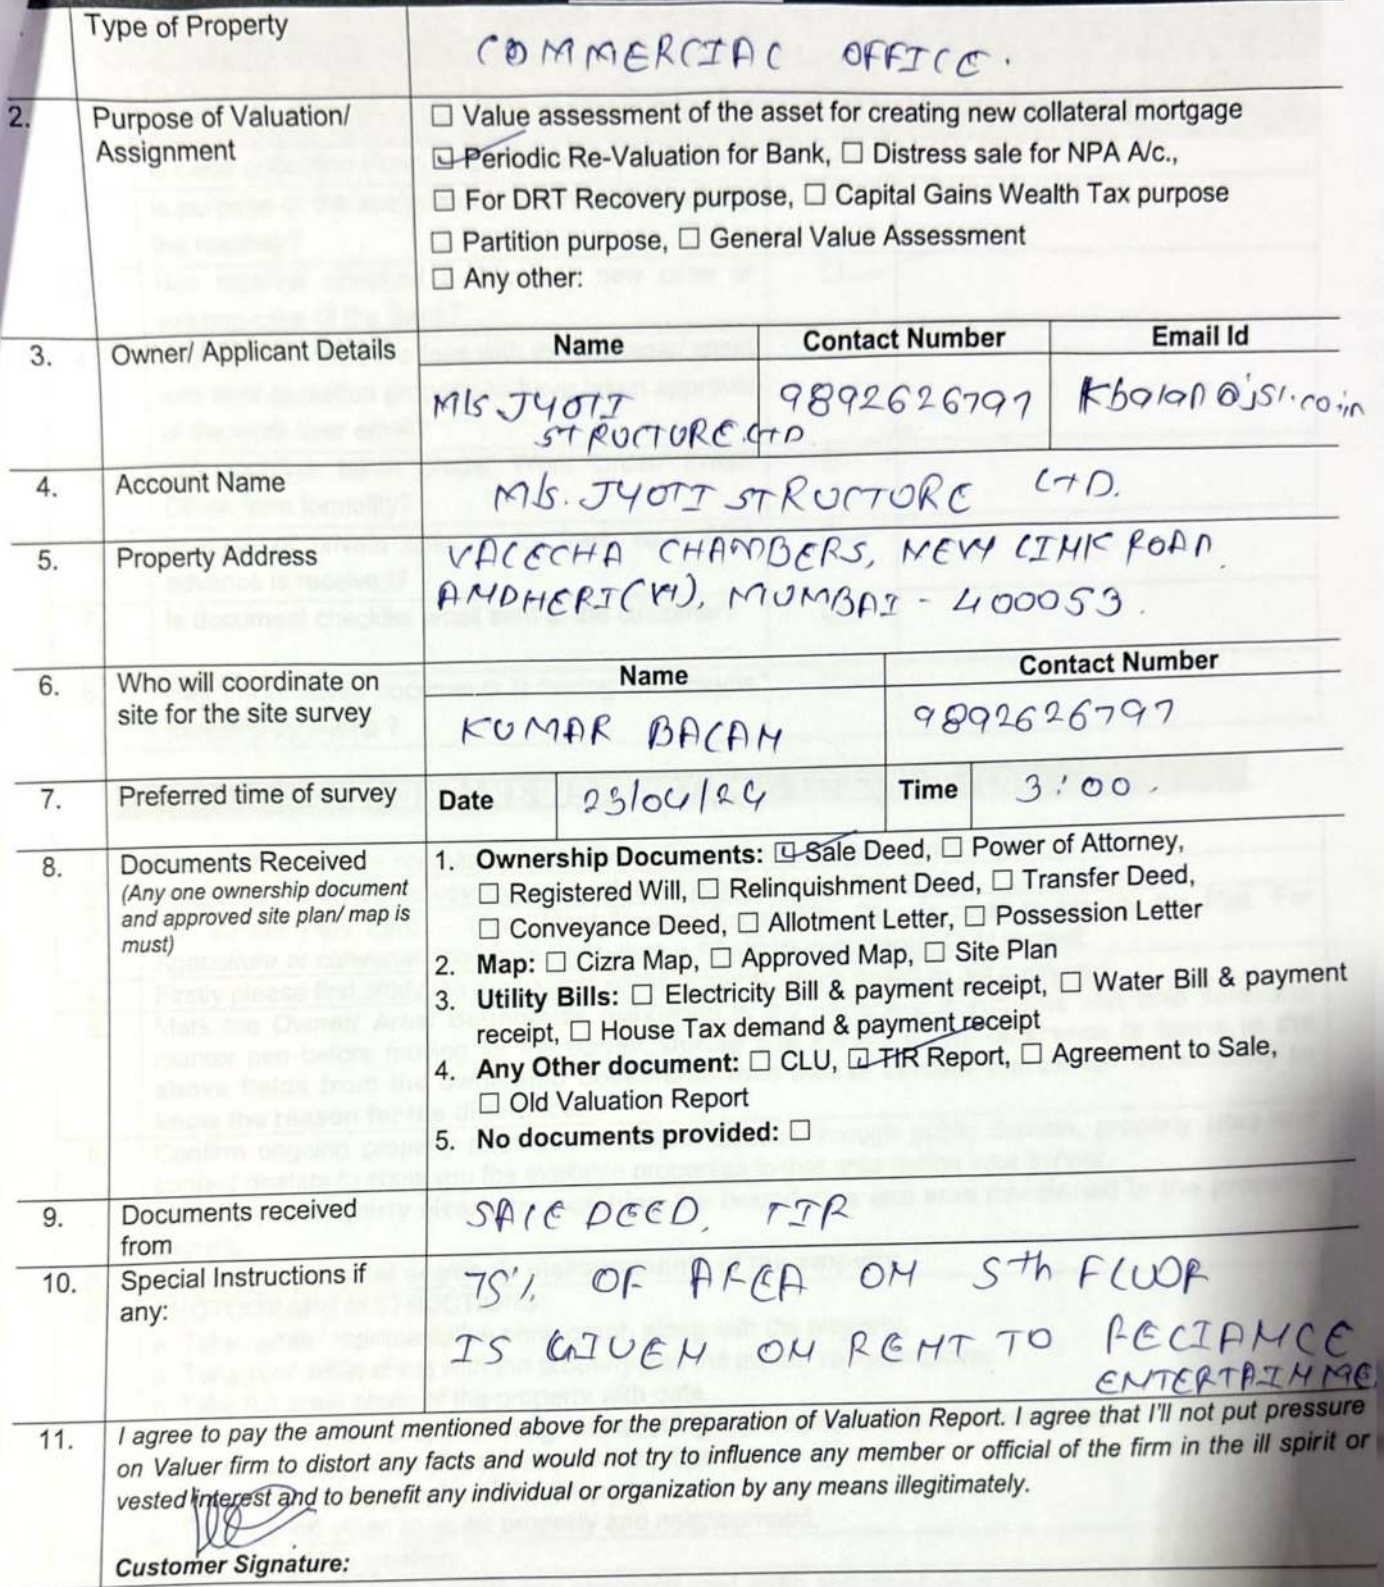 Type of Property
COMMERCIAL OFFICE.
2. Purpose of Valuation/ Assignment
☐ Value assessment of the asset for creating new collateral mortgage
☑ Periodic Re-Valuation for Bank, ☐ Distress sale for NPA A/c.,
☐ For DRT Recovery purpose, ☐ Capital Gains Wealth Tax purpose
☐ Partition purpose, ☐ General Value Assessment
☐ Any other:
3. Owner/ Applicant Details
Name Contact Number Email Id
M/s JYOTI 9892626797 Kbalan@jsl.co.in
STRUCTURE.LTD
4. Account Name M/s. JYOTI STRUCTURE LTD.
5. Property Address VALECHA CHAMBERS, NEW LINK ROAD
ANDHERI(W), MUMBAI - 400053.
6. Who will coordinate on
site for the site survey
Name Contact Number
KUMAR BALAN 9892626797
7. Preferred time of survey Date 23/04/24 Time 3:00.
8. Documents Received
(Any one ownership document
and approved site plan/ map is
must)
1. Ownership Documents: ☑ Sale Deed, ☐ Power of Attorney,
☐ Registered Will, ☐ Relinquishment Deed, ☐ Transfer Deed,
☐ Conveyance Deed, ☐ Allotment Letter, ☐ Possession Letter
2. Map: ☐ Cizra Map, ☐ Approved Map, ☐ Site Plan
3. Utility Bills: ☐ Electricity Bill & payment receipt, ☐ Water Bill & payment
receipt, ☐ House Tax demand & payment receipt
4. Any Other document: ☐ CLU, ☑ TIR Report, ☐ Agreement to Sale,
☐ Old Valuation Report
5. No documents provided: ☐
9. Documents received
from
SALE DEED, TIR
10. Special Instructions if
any:
75% OF AREA ON 5th FLOOR
IS GIVEN ON RENT TO RELIANCE
ENTERTAINME
11. I agree to pay the amount mentioned above for the preparation of Valuation Report. I agree that I'll not put pressure
on Valuer firm to distort any facts and would not try to influence any member or official of the firm in the ill spirit or
vested interest and to benefit any individual or organization by any means illegitimately.
Customer Signature: